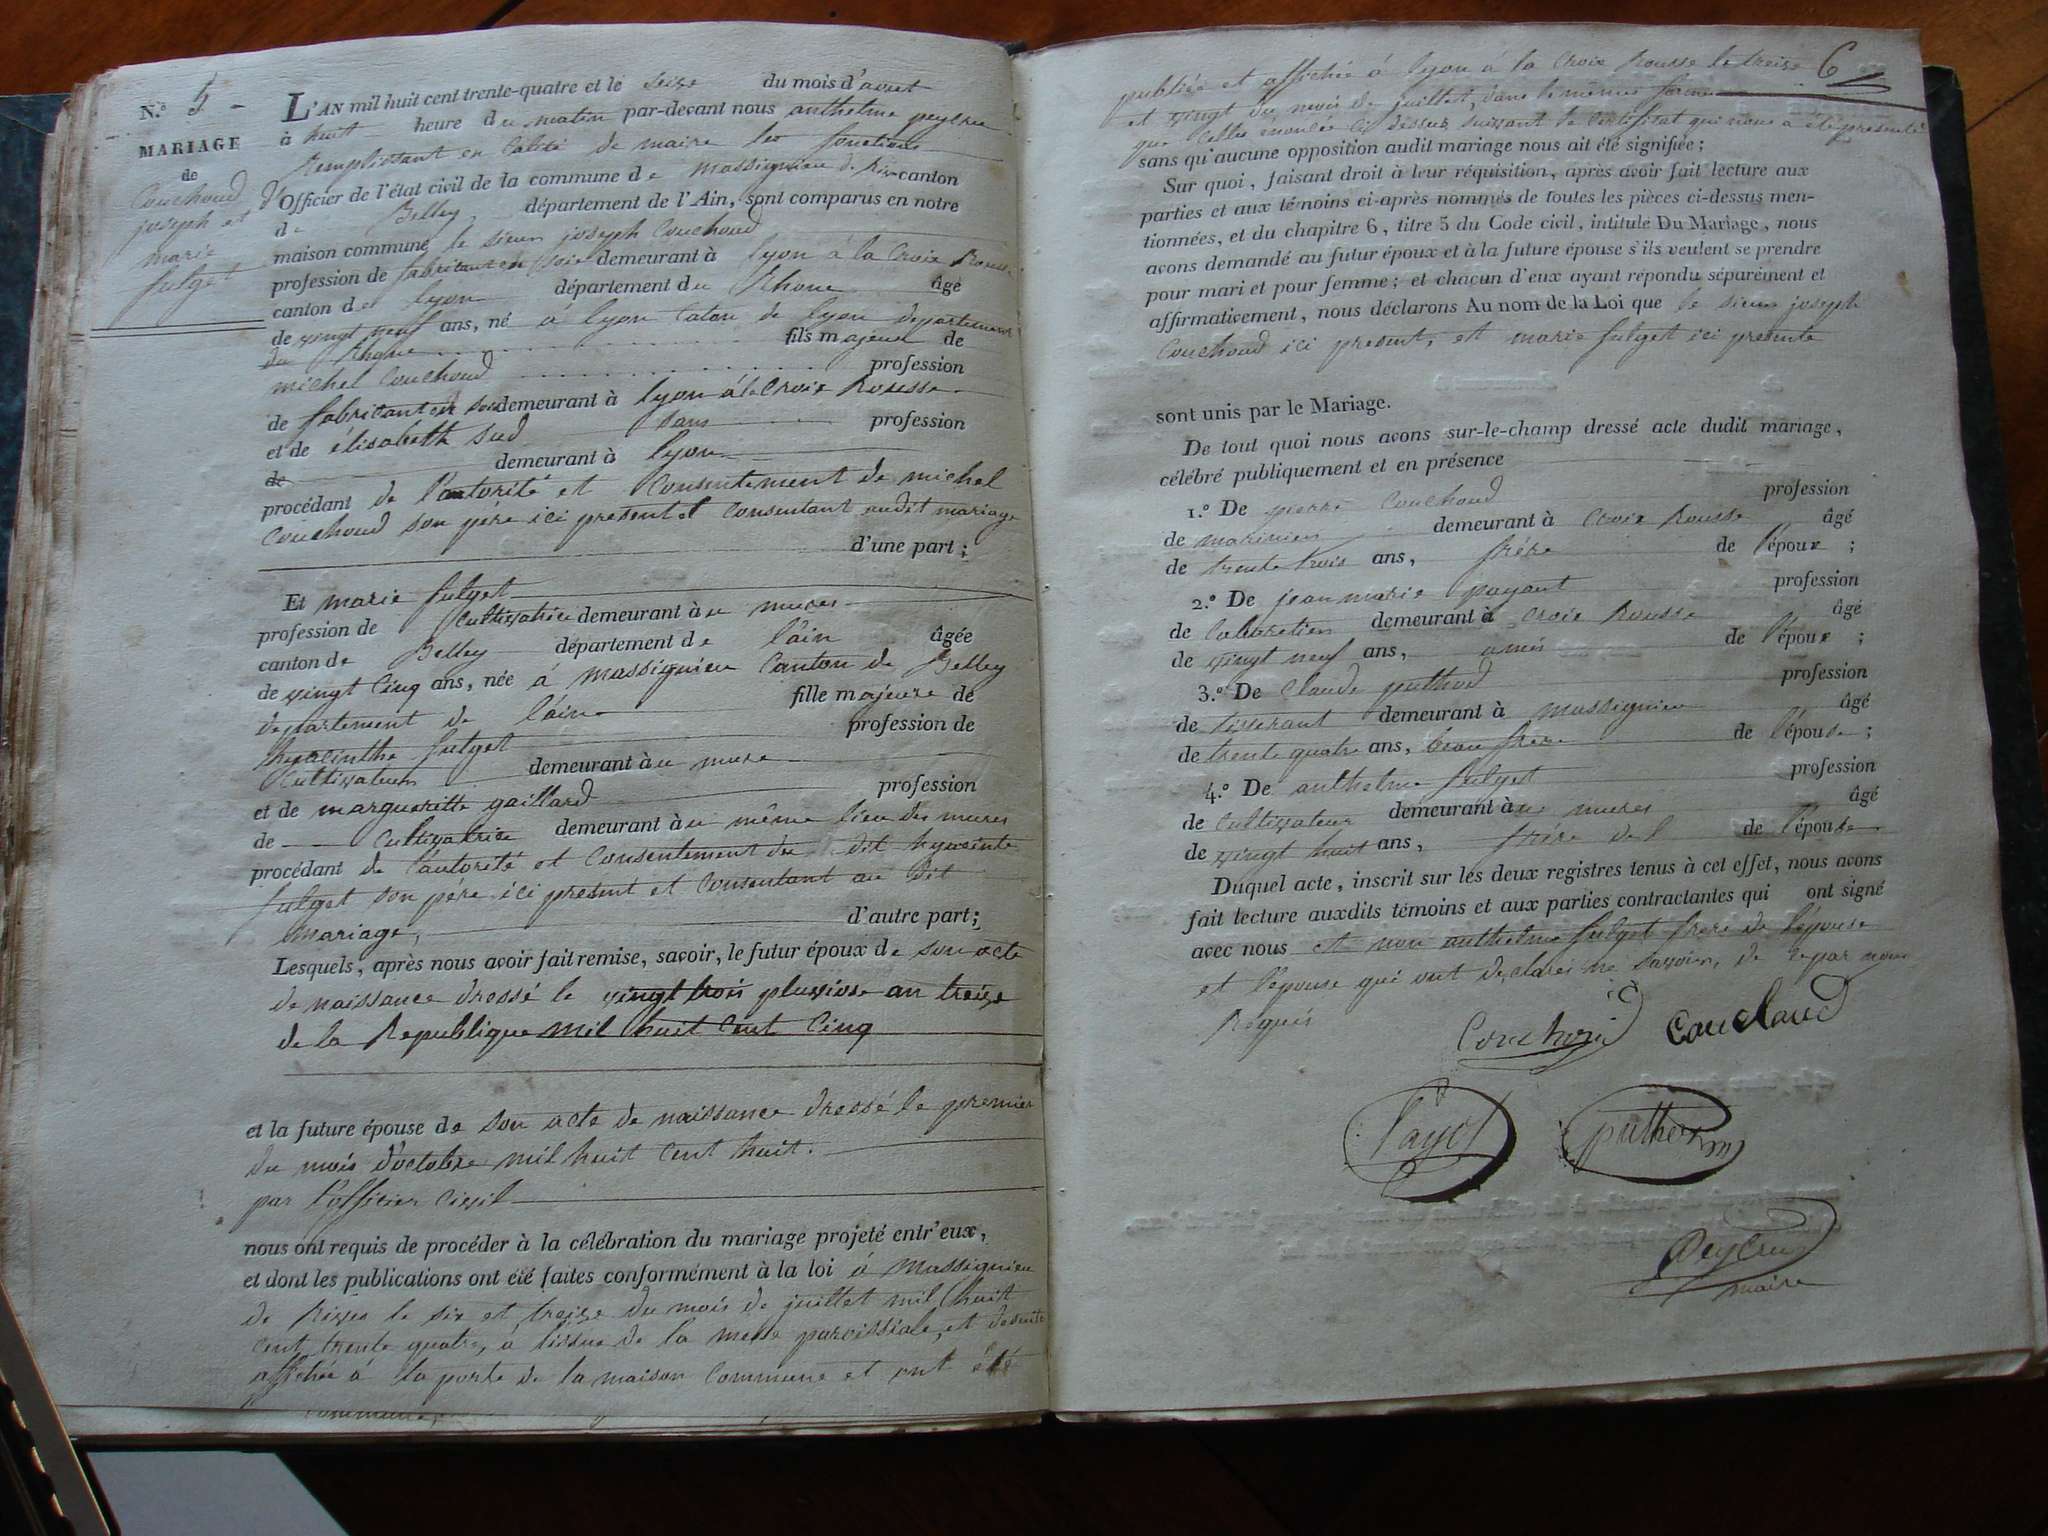 N.° 5
MARIAGE
de
Couchoud
joseph et
marie
fulget
L'AN mil huit cent trente-quatre et le seize du mois d'aout
à huit heure du matin par-devant nous anthelme peysru
Remplissant en calité de maire les fonctions
d'Officier de l'état civil de la commune de massignieu de Rive canton
de Belley département de l'Ain, sont comparus en notre
maison commune le sieur joseph Couchoud
profession de fabricant en soie demeurant à lyon à la Croix Rousse
canton de lyon département du Rhone âgé
de vingt neuf ans, né à lyon Caton de lyon departement
du Rhone fils majeur de
michel Couchoud profession
de fabricant en soie demeurant à lyon à la Croix Rousse
et de élisabeth sud sans profession
de demeurant à lyon
procédant de l'autorité et Consentement de michel
Couchoud son père ici present et Consentant audit mariage
d'une part;
Et marie fulget
profession de Cultivatrice demeurant à u mures
canton de Belley département de l'ain âgée
de vingt cinq ans, née à massignieu Canton de Belley
departement de l'ain fille majeure de
hyacinthe fulget profession de
Cultivateur demeurant à u mure
et de margueritte gaillard profession
de Cultivatrice demeurant à u même lieu des mures
procédant de l'autorité et Consentement du dit hyacinte
fulget son père ici present et Consentant au dit
mariage, d'autre part;
Lesquels, après nous avoir fait remise, savoir, le futur époux de son acte
de naissance dressé le vingt trois pluviose an treize
de la Republique mil huit Cent Cinq
et la future épouse de son acte de naissance dressé le premier
du mois d'octobre mil huit Cent huit.
par l'officier Civil
nous ont requis de procéder à la célébration du mariage projeté entr'eux,
et dont les publications ont été faites conformément à la loi à massignieu
de Rives le six et treize du mois de juillet mil huit
Cent trente quatre, à l'issue de la messe paroissiale, et de suite
affichée à la porte de la maison Commune et ont été
6
publiée et affichée à lyon à la Croix Rousse le treize
et vingt du mois de juillet, dans le même forme
que Celle énoncée ci dessus suivant le Certifitat qui nous a été presenté
sans qu'aucune opposition audit mariage nous ait été signifiée;
Sur quoi, faisant droit à leur réquisition, après avoir fait lecture aux
parties et aux témoins ci-après nommés de toutes les pièces ci-dessus men-
tionnées, et du chapitre 6, titre 5 du Code civil, intitulé Du Mariage, nous
avons demandé au futur époux et à la future épouse s'ils veulent se prendre
pour mari et pour femme; et chacun d'eux ayant répondu séparément et
affirmativement, nous déclarons Au nom de la Loi que le sieur joseph
Couchoud ici present, et marie fulget ici presente
sont unis par le Mariage.
De tout quoi nous avons sur-le-champ dressé acte dudit mariage,
célébré publiquement et en présence
1.° De pierre Couchoud profession
de marinier demeurant à Croix Rousse âgé
de trente trois ans, frére de l'époux;
2.° De jean marie payant profession
de Cabaretien demeurant à Croix Rousse âgé
de vingt neuf ans, amis de l'époux;
3.° De Claude puthod profession
de tisserant demeurant à massignieu âgé
de trente quatre ans, beau frere de l'épouse;
4.° De anthelme fulget profession
de Cultivateur demeurant à u mures âgé
de vingt huit ans, frére de l de l'épouse
Duquel acte, inscrit sur les deux registres tenus à cet effet, nous avons
fait lecture auxdits témoins et aux parties contractantes qui ont signé
avec nous et non anthelme fulget frere de l'épouse
et l'épouse qui ont declarés ne savoir, de ce par nous
Requis
Couchoud Couchoud
Payot puthod
Peysru
maire